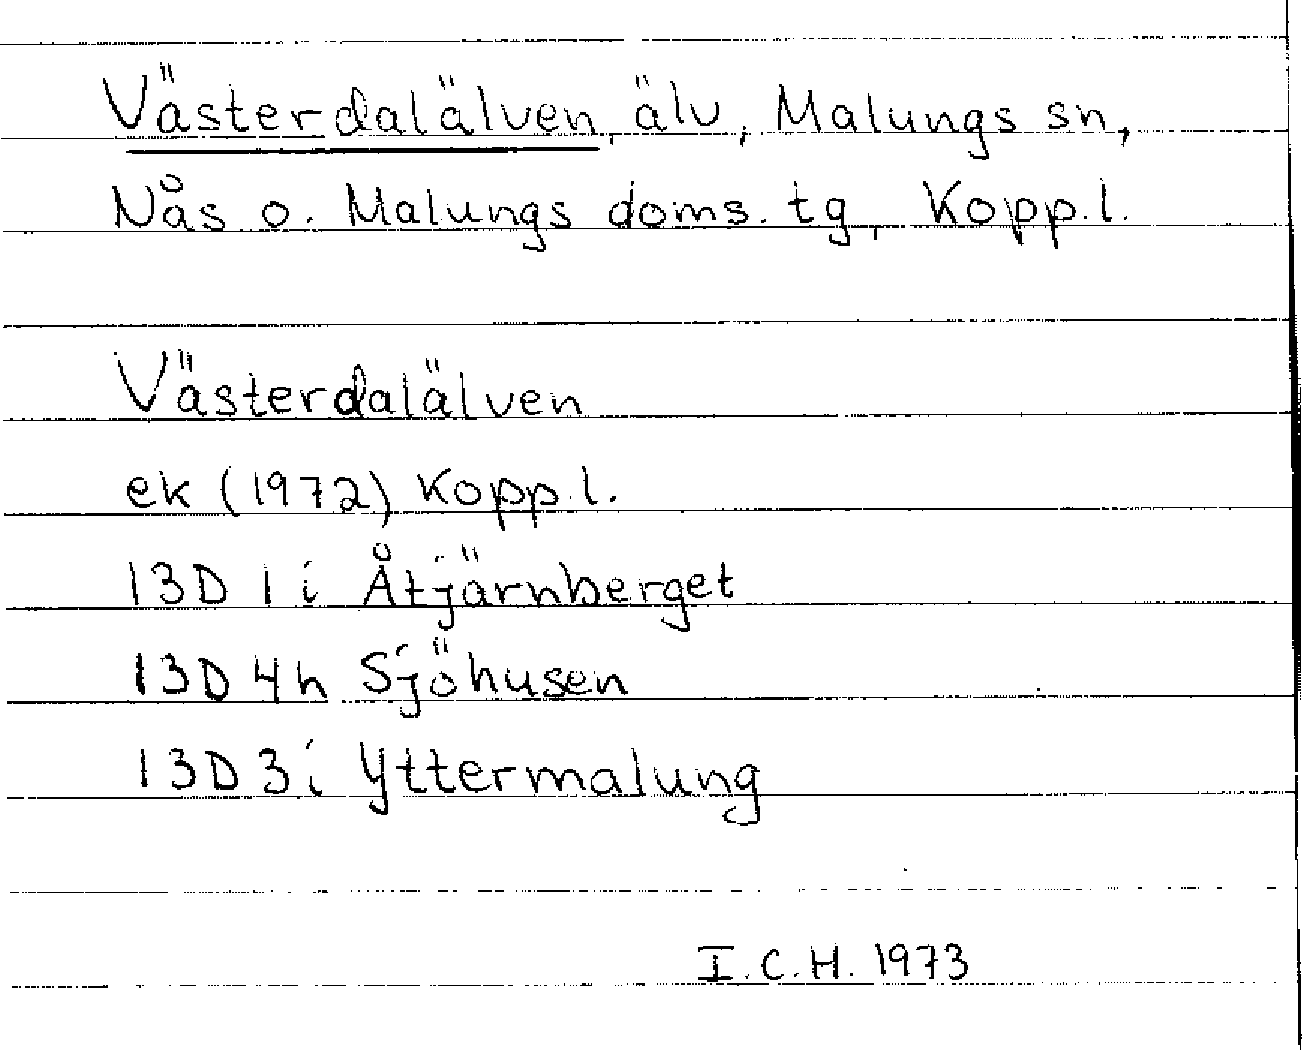 Västerdalälven, älv, Malungs sn,
Nås o. Malungs doms. tg, Kopp.l.
Västerdalälven
ek (1972) Kopp.l.
13D 1i Åtjärnberget
13D 4h Sjöhusen
13D 3i Yttermalung
I.C.H. 1973